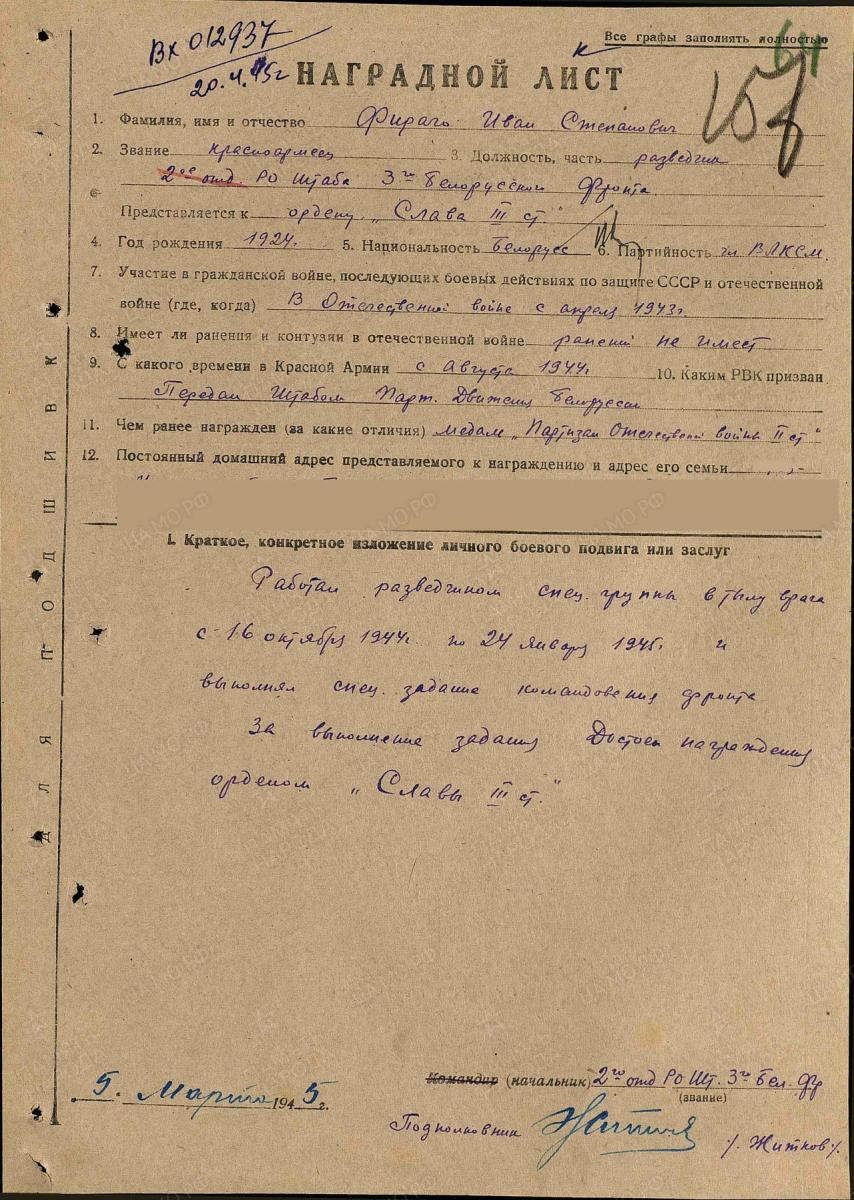 Вх 012937
20.4.45г
Все графы заполнять полностью
64
НАГРАДНОЙ ЛИСТ
1. Фамилия, имя и отчество Фираго Иван Степанович
2. Звание красноармеец 3. Должность, часть разведчик
2ое отд. РО Штаба 3го Белорусского фронта
Представляется к ордену „Слава III ст."
4. Год рождения 1924г. 5. Национальность Белорусс 6. Партийность чл ВЛКСМ.
7. Участие в гражданской войне, последующих боевых действиях по защите СССР и отечественной
войне (где, когда) В Отечественной войне с апреля 1943г.
8. Имеет ли ранения и контузии в отечественной войне ранений не имеет
9. С какого времени в Красной Армии с Августа 1944г 10. Каким РВК призван
Передан Штабом Парт. Движения Белоруссии
11. Чем ранее награжден (за какие отличия) медаль „Партизан Отечественной войны II ст"
12. Постоянный домашний адрес представляемого к награждению и адрес его семьи
I. Краткое, конкретное изложение личного боевого подвига или заслуг
Работал разведчиком спец. группы в тылу врага
с 16 октября 1944г. по 24 января 1945г и
выполнял спец. задание командования фронта
За выполнение задания Достоен награждения
орденом „Славы III ст."
ДЛЯ ПОДШИВКИ
Командир (начальник) 2го отд РО Шт. 3го Бел. Фр
(звание)
5. Марта 1945г.
Подполковник /. Житков/.
ЦАМО РФ